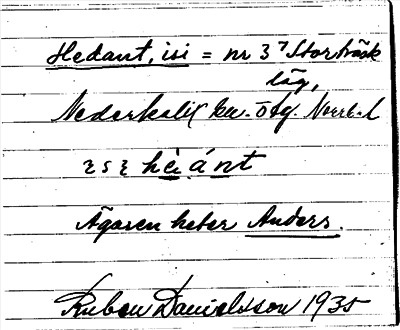 Hedant, isi = nr 3⁷ Storträsk
läg,
Nederkalix kn.
hèánt
Ägaren heter Anders.
Ruben Danielsson 1935